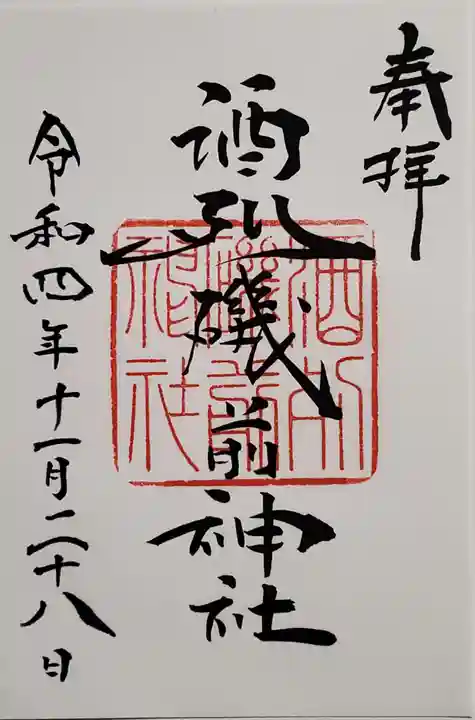 奉拝
酒列磯前神社
令和四年十一月二十八日
酒列
磯前
神社